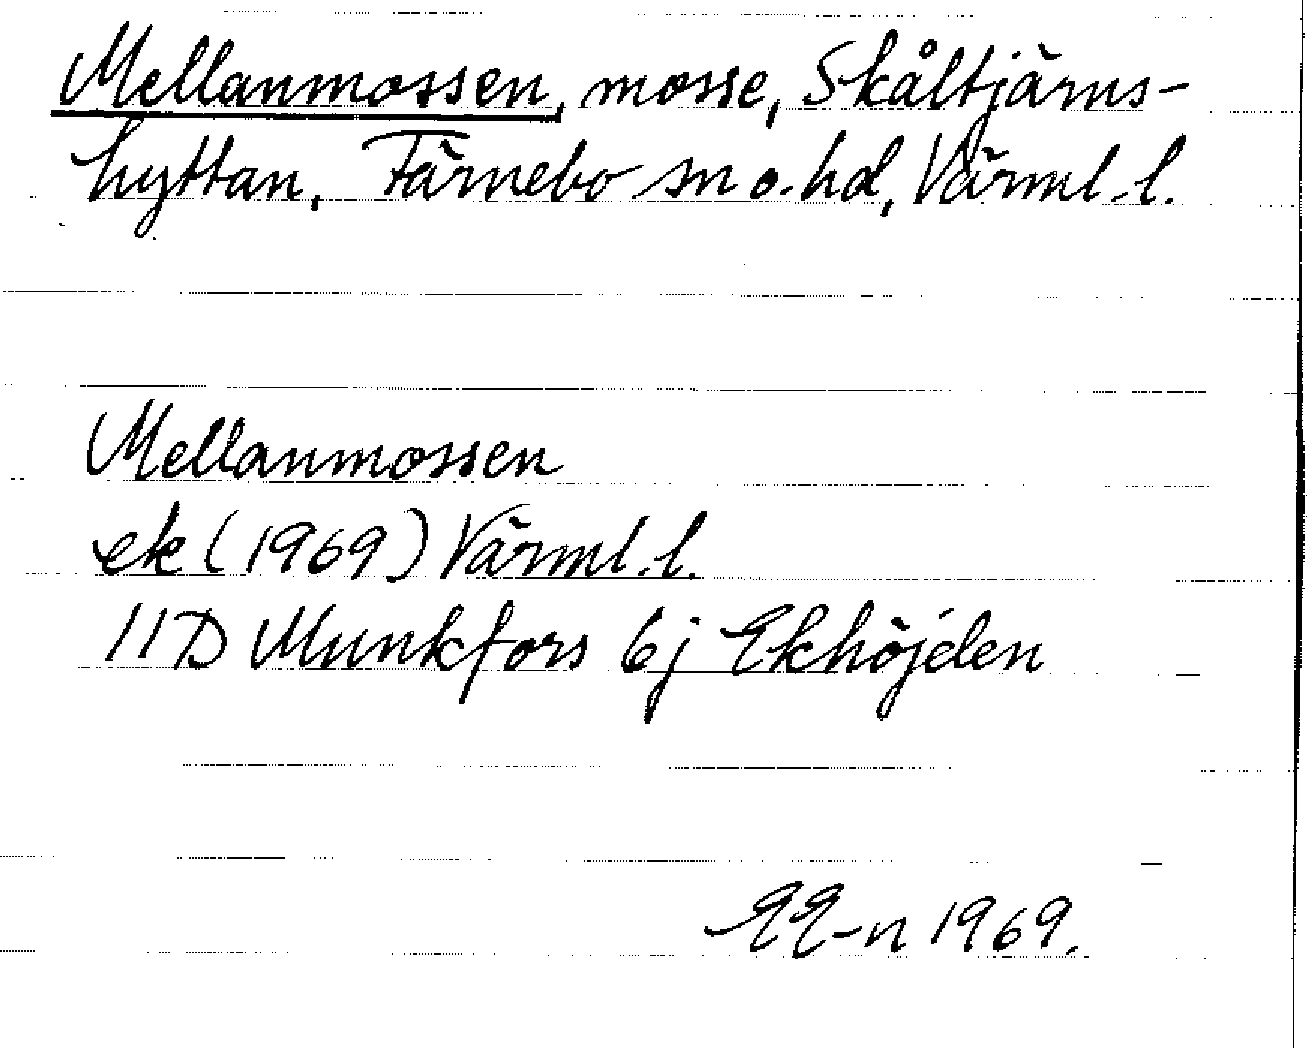 Mellanmossen, mosse, Skåltjärns-
hyttan, Färnebo sn o. hd, Värml. l.
Mellanmossen
ek (1969) Värml. l.
11D Munkfors 6j Ekhöjden
EE-n 1969.